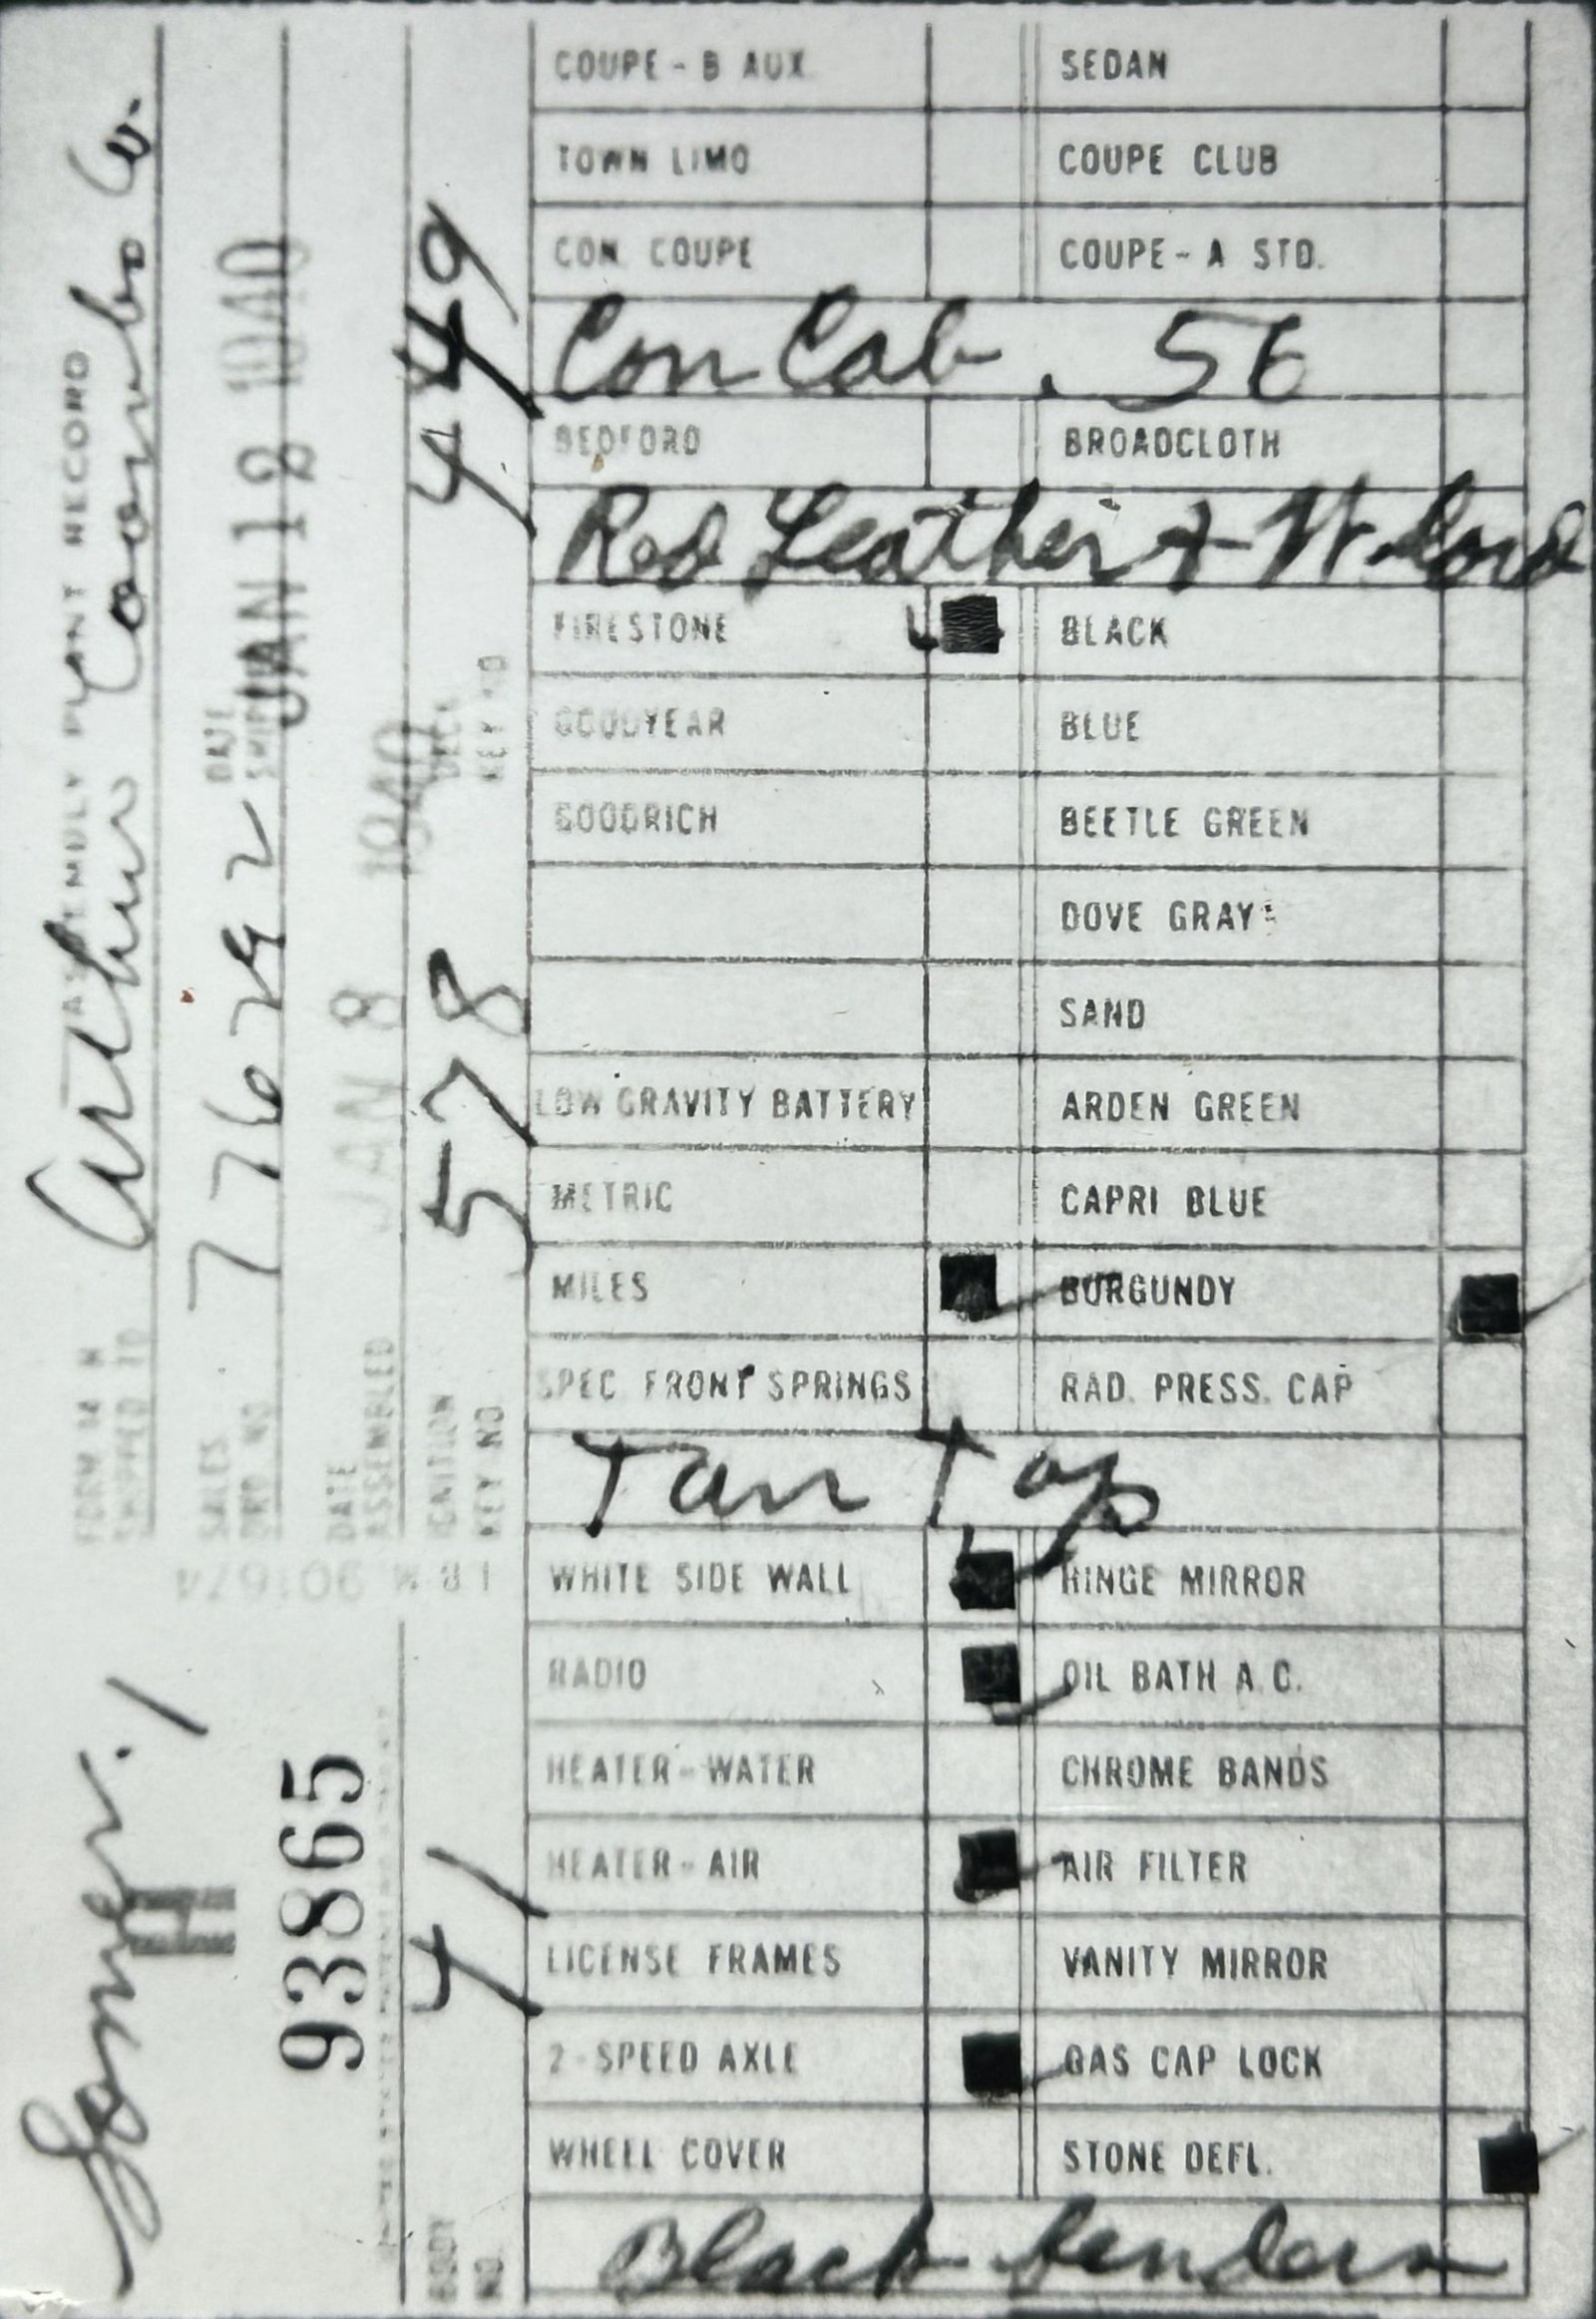 COUPE - B AUX SEDAN
TOWN LIMO COUPE CLUB
CON. COUPE COUPE - A STD.
Con Cab. 56
BEDFORD BROADCLOTH
Red Leather + W. Cord
FIRESTONE BLACK
GOODYEAR BLUE
GOODRICH BEETLE GREEN
DOVE GRAY
SAND
LOW GRAVITY BATTERY ARDEN GREEN
METRIC CAPRI BLUE
MILES BURGUNDY
SPEC FRONT SPRINGS RAD. PRESS. CAP
Tan Top
WHITE SIDE WALL HINGE MIRROR
RADIO OIL BATH A.C.
HEATER - WATER CHROME BANDS
HEATER - AIR AIR FILTER
LICENSE FRAMES VANITY MIRROR
2 - SPEED AXLE GAS CAP LOCK
WHEEL COVER STONE DEFL.
Black fenders
ASSEMBLY PLANT RECORD
SHIPPED TO
SALES ORD. NO.
DATE SHIPPED JAN 12 1940
DATE ASSEMBLED JAN 8 1940
IGNITION KEY NO. 578
DECK KEY NO 449
H 93865
BODY NO. 41